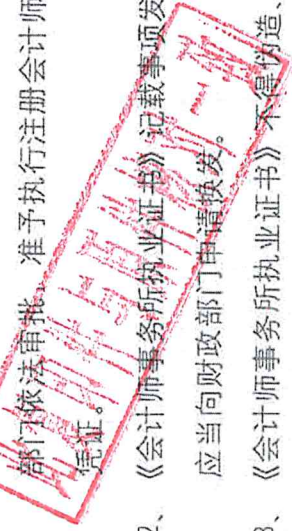 部门依法审批，准予执行注册会计师
凭证。
2、《会计师事务所执业证书》记载事项发
应当向财政部门申请换发。
3、《会计师事务所执业证书》不得伪造、